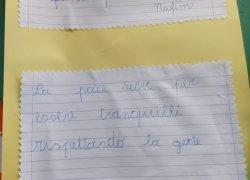 Nafim
La pace serve per
essere tranquilli
rispettando la gente